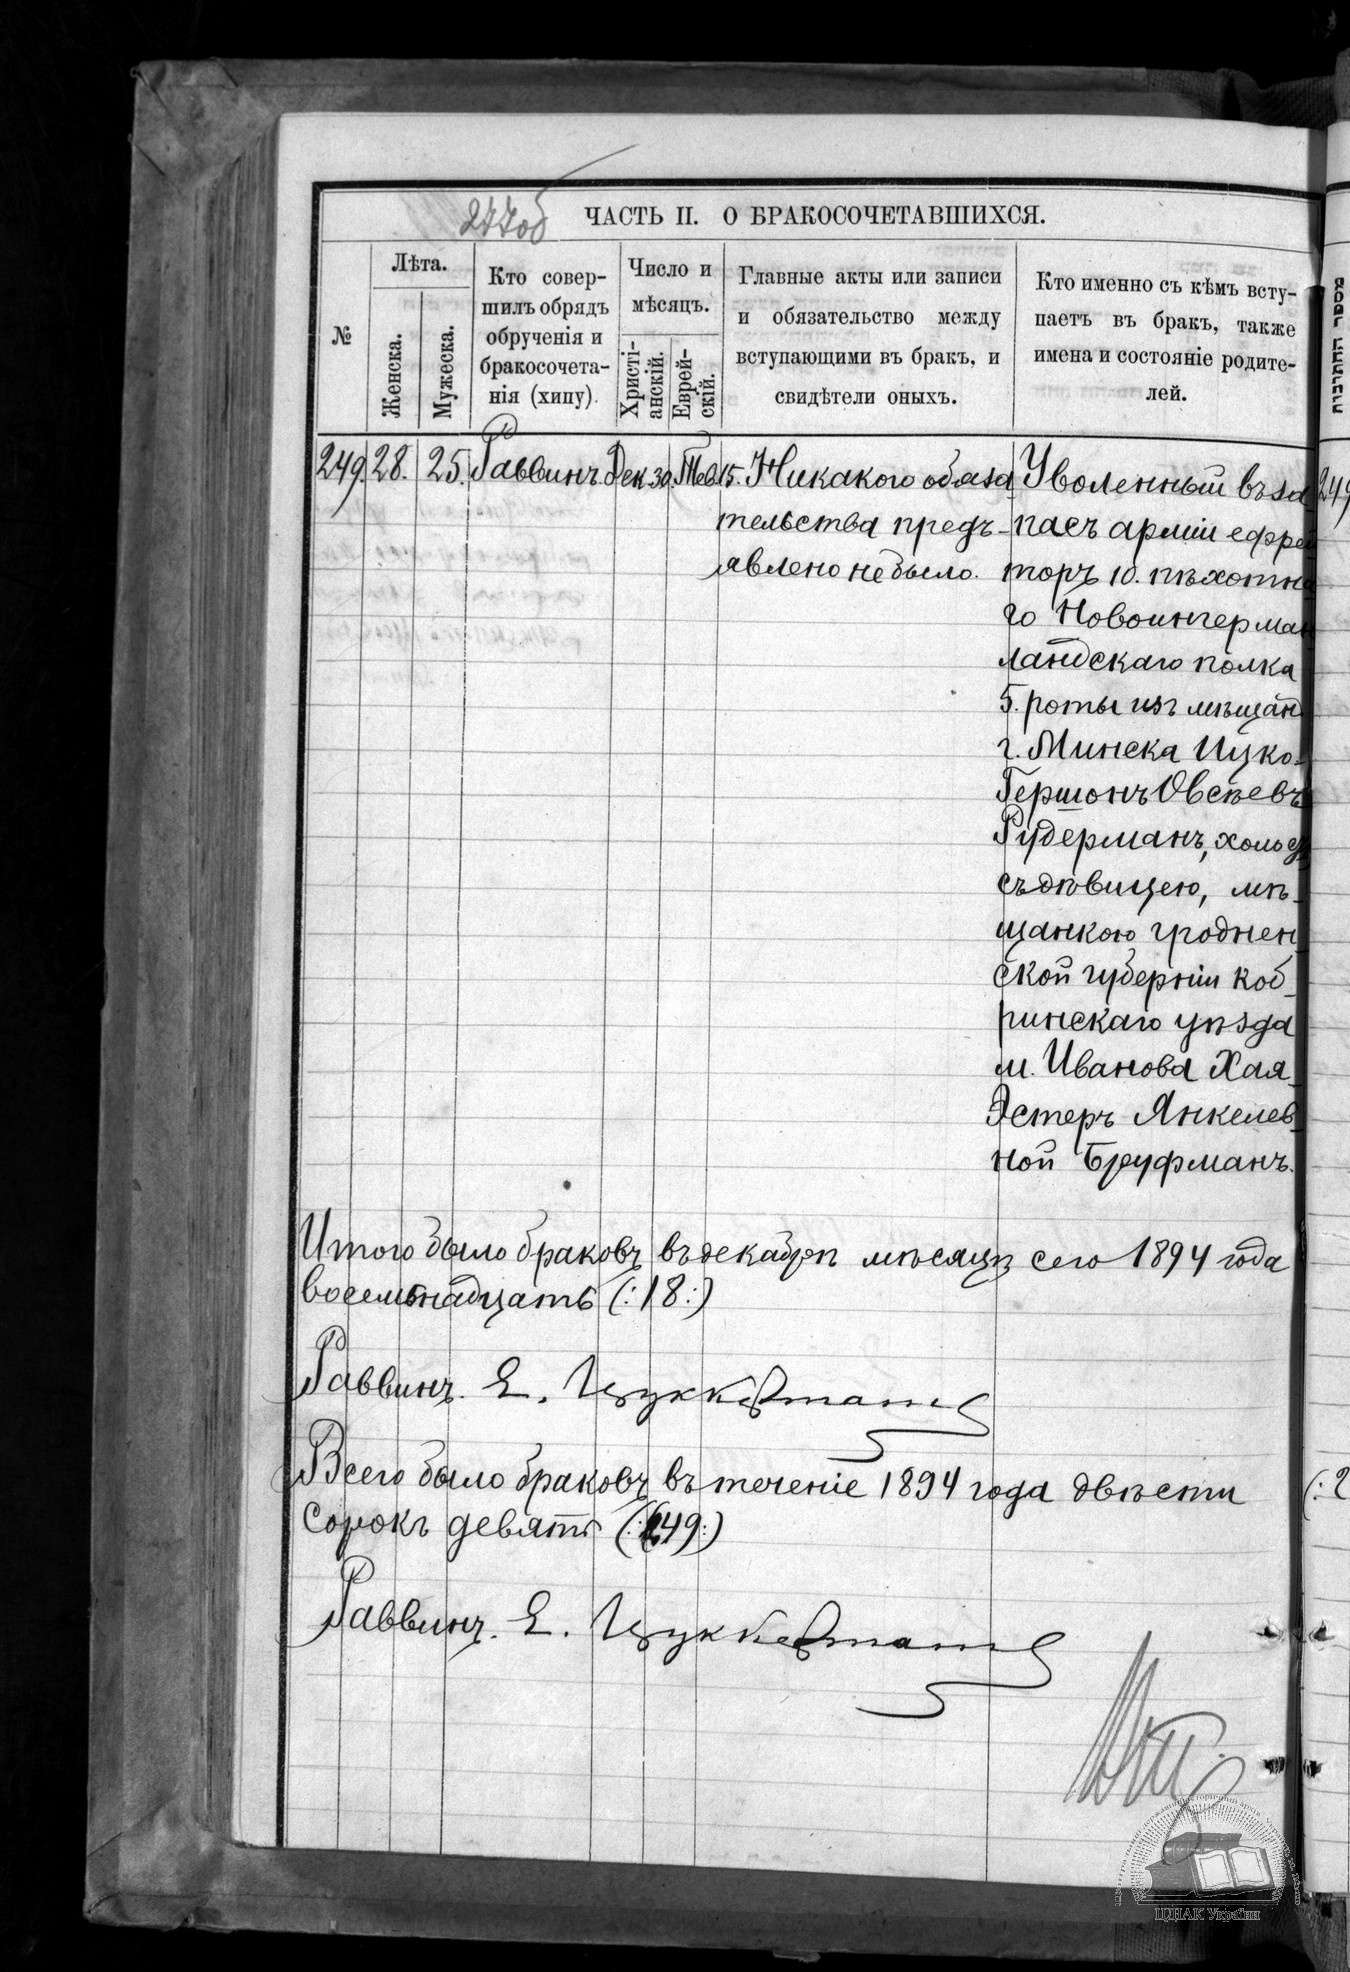 277об
ЧАСТЬ II. О БРАКОСОЧЕТАВШИХСЯ.
№
Лѣта.
Женска.
Мужеска.
Кто совер-
шилъ обрядъ
обрученія и
бракосочета-
нія (хипу)
Число и
мѣсяцъ.
Христі-
анскій.
Еврей-
скій.
Главные акты или записи
и обязательство между
вступающими въ бракъ, и
свидѣтели оныхъ.
Кто именно съ кѣмъ всту-
паетъ въ бракъ, также
имена и состояніе родите-
лей.
249. 28. 25. Раввинъ. Дек 30. Тев. 15. Никакого обяза-
тельства предъ-
явлено не было.
Уволенный въ за-
пасъ арміи ефрей
торъ 10. пѣхотна
го Новоингерман
ландскаго полка
5. роты изъ мѣщан
г. Минска Ицко-
Гершонъ Овсѣевъ
Рудерманъ, холос
съ дѣвицею, мѣ-
щанкою гроднен-
ской губерніи коб-
ринскаго уѣзда
м. Иванова Хая-
Эстеръ Янкелев-
ной Бруфманъ.
Итого было браковъ въ декабрѣ мѣсяцѣ сего 1894 года
восемьнадцать (:18:)
Раввинъ. Е. Цуккерманъ
Всего было браковъ въ теченіе 1894 года двѣсти
сорокъ девять (:249:)
Раввинъ. Е. Цуккерманъ
249
(:2
ЦДІАК України